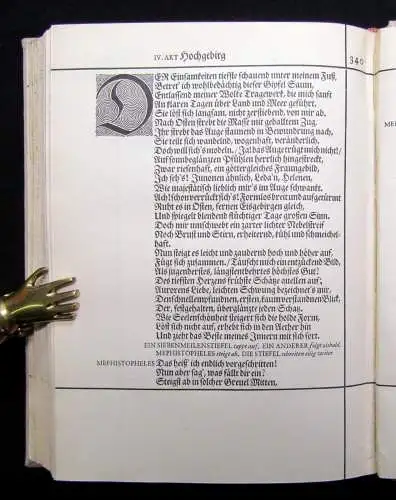 IV. AKT Hochgebirg
340
DER Einsamkeiten tiefste schauend unter meinem Fuß,
Betret' ich wohlbedächtig dieser Gipfel Saum,
Entlassend meiner Wolke Tragewerk, die mich sanft
An klaren Tagen über Land und Meer geführt.
Sie löst sich langsam, nicht zerstiebend, von mir ab.
Nach Osten strebt die Masse mit geballtem Zug,
Ihr strebt das Auge staunend in Bewundrung nach,
Sie teilt sich wandelnd, wogenhaft, veränderlich.
Doch will sich's modeln. / Ja! das Auge trügt mich nicht! /
Auf sonnbeglänzten Pfühlen herrlich hingestreckt,
Zwar riesenhaft, ein göttergleiches Fraungebild,
Ich seh's! Junonen ähnlich, Leda'n, Helenen,
Wie majestätisch lieblich mir's im Auge schwankt.
Ach! schon verrückt sich's! Formlos breit und aufgetürmt
Ruht es in Osten, fernen Eisgebirgen gleich,
Und spiegelt blendend flüchtiger Tage großen Sinn.
Doch mir umschwebt ein zarter lichter Nebelstreif
Noch Brust und Stirn, erheiternd, kühl und schmeichel-
haft.
Nun steigt es leicht und zaudernd hoch und höher auf,
Fügt sich zusammen. / Täuscht mich ein entzückend Bild,
Als jugenderstes, längstentbehrtes höchstes Gut?
Des tiefsten Herzens frühste Schätze quellen auf;
Aurorens Liebe, leichten Schwung bezeichnet's mir,
Den schnellempfundnen, ersten, kaum verstandnen Blick,
Der, festgehalten, überglänzte jeden Schatz.
Wie Seelenschönheit steigert sich die holde Form,
Löst sich nicht auf, erhebt sich in den Aether hin
Und zieht das Beste meines Innern mit sich fort.
EIN SIEBENMEILENSTIEFEL tappt auf. EIN ANDERER folgt alsbald.
MEPHISTOPHELES steigt ab. DIE STIEFEL schreiten eilig weiter.
MEPHISTOPHELES Das heiß' ich endlich vorgeschritten!
Nun aber sag', was fällt dir ein?
Steigst ab in solcher Greuel Mitten,